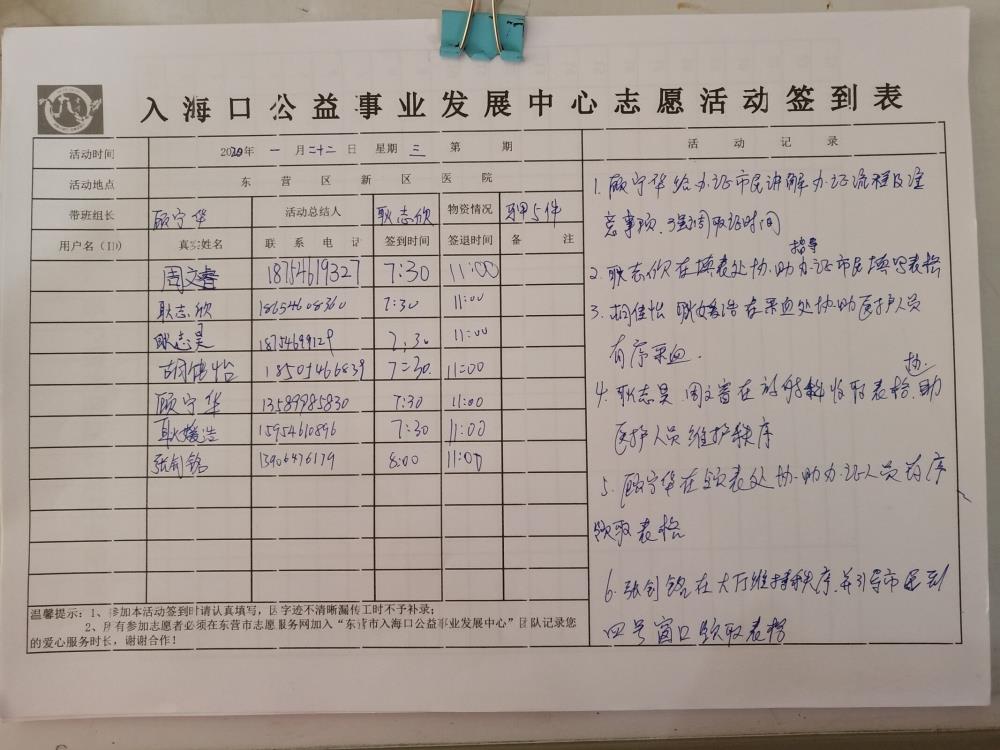 入海口公益事业发展中心志愿活动签到表
活动时间 2020年 一 月二十二 日 星期 三 第 期
活动地点 东营区新区医院
带班组长 顾宁华 活动总结人 耿志欣 物资情况 马甲5件
用户名（ID） 真实姓名 联系电话 签到时间 签退时间 备注
周文睿 18754619327 7:30 11:00
耿志欣 18654608360 7:30 11:00
耿志昊 18754699129 7:30 11:00
胡佳怡 18501466839 7:30. 11:00
顾宁华 13589985830 7:30 11:00
耿媛浩 15954610896 7:30 11:00
张剑铭 13906476179 8:00 11:00
温馨提示：1、参加本活动签到时请认真填写，因字迹不清晰漏传工时不予补录；
2、所有参加志愿者必须在东营市志愿服务网加入“东营市入海口公益事业发展中心”团队记录您
的爱心服务时长，谢谢合作！
活动记录
1. 顾宁华给办证市民讲解办证流程及注
意事项，强调取证时间
2. 耿志欣在填表处协助指导办证市民填写表格
3. 胡佳怡 耿媛浩在采血处协助医护人员
有序采血.
4. 耿志昊 周文睿在放射科收取表格.协助
医护人员维护秩序
5. 顾宁华在领表处协助办证人员有序
领取表格
6. 张剑铭在大厅维持秩序.并引导市民到
四号窗口领取表格